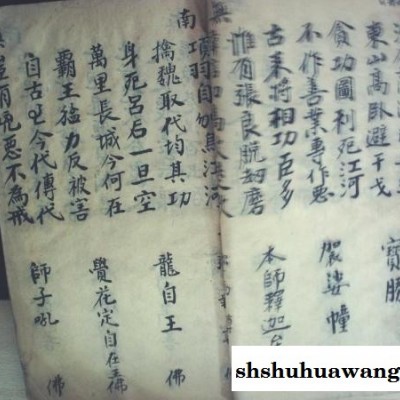 東山高臥避干戈
貪功圖利死江河
不作善業專作惡
古來將相功臣多
惟有張良脫劫磨
寶勝
袈裟幢
本師釋迦
無
南
項羽自刎
擒魏取代均其功
身死呂后一旦空
萬里長城今何在
霸王猛力反被害
自古至今代傳代
惡不為戒
龍自王 佛
覺花定自在王佛
師子吼 佛
shshuhuawang